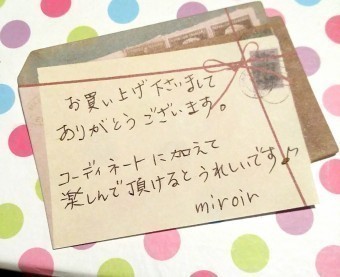 お買い上げ下さいまして
ありがとうございます。
コーディネートに加えて
楽しんで頂けるとうれしいです♪
miroir